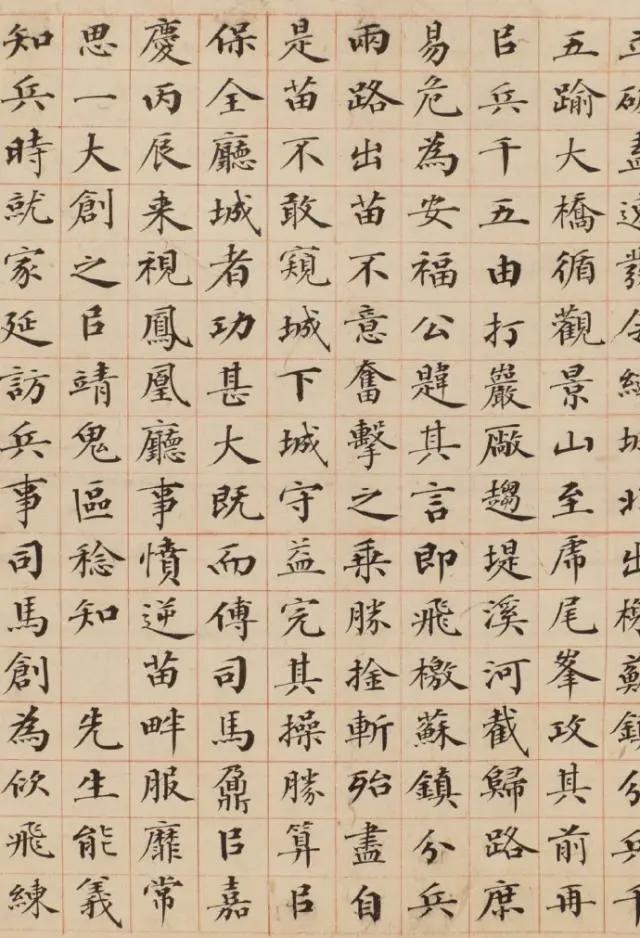 盡令城北出鎮分兵千
五踰大橋循觀景山至虎尾峯攻其前再
㠯兵千五由打巖厰趨堤溪河截歸路庶
易危為安福公韙其言即飛檄蘇鎮分兵
兩路出苗不意奮擊之乘勝捦斬殆盡自
是苗不敢窺城下城守益完其操勝算㠯
保全廳城者功甚大既而傅司馬鼐㠯嘉
慶丙辰来視鳳凰廳事憤逆苗畔服靡常
思一大創之㠯靖鬼區稔知 先生能義
知兵時就家延訪兵事司馬創為佽飛練